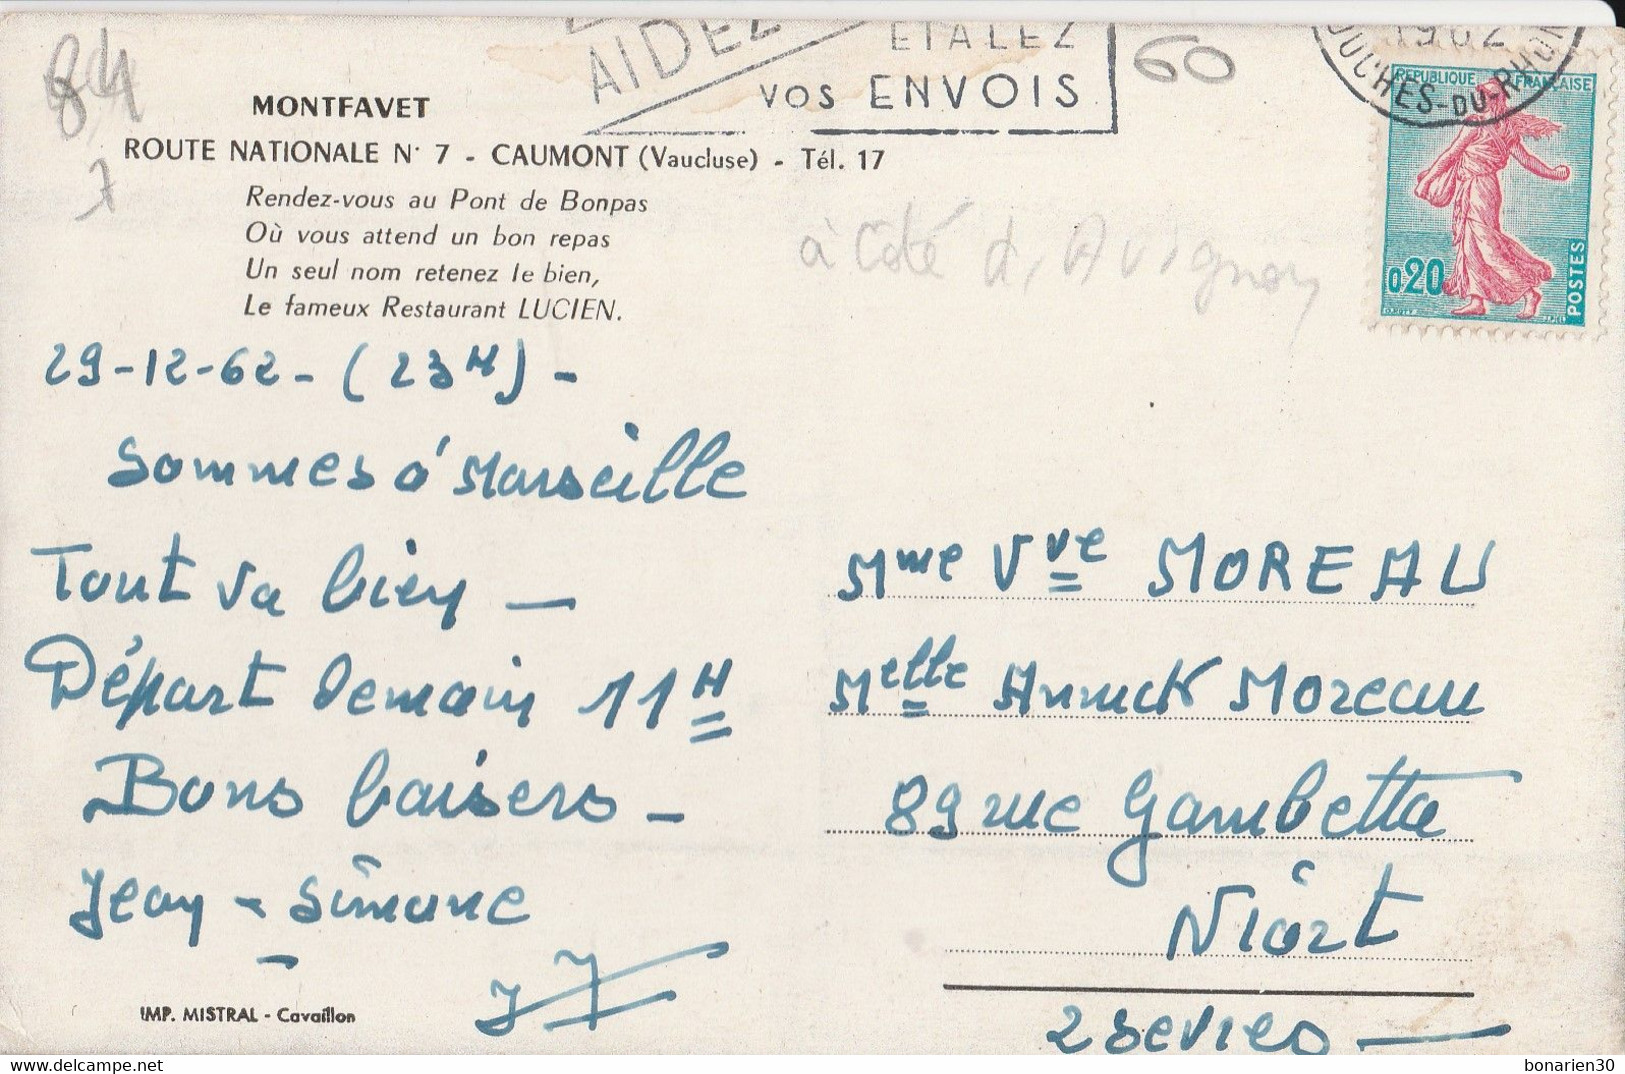 84
7
AIDEZ
ETALEZ
VOS ENVOIS
60
1962
BOUCHES-DU-RHONE
REPUBLIQUE FRANÇAISE
0,20
POSTES
MONTFAVET
ROUTE NATIONALE N° 7 - CAUMONT (Vaucluse) - Tél. 17
Rendez-vous au Pont de Bonpas
Où vous attend un bon repas
Un seul nom retenez le bien,
Le fameux Restaurant LUCIEN.
à Coté d, Avignon
29-12-62 - (23H) -
Sommes à Marseille
Tout va bien —
Départ demain 11H
Bons baisers —
Jean - Simone
IMP. MISTRAL - Cavaillon
Mme Vve MOREAU
Melle Annick Moreau
89 rue Gambetta
Niort
2 Sevres —
bonarien30